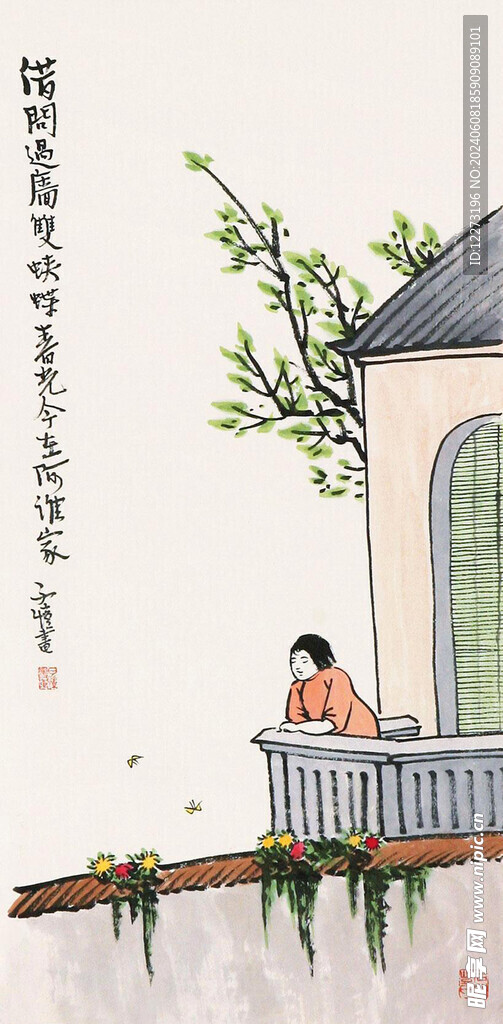 借問過牆雙蛱蝶春光今在阿谁家
子愷畫
ID:12273196 NO:20240608185909089101
昵享网 www.nipic.cn